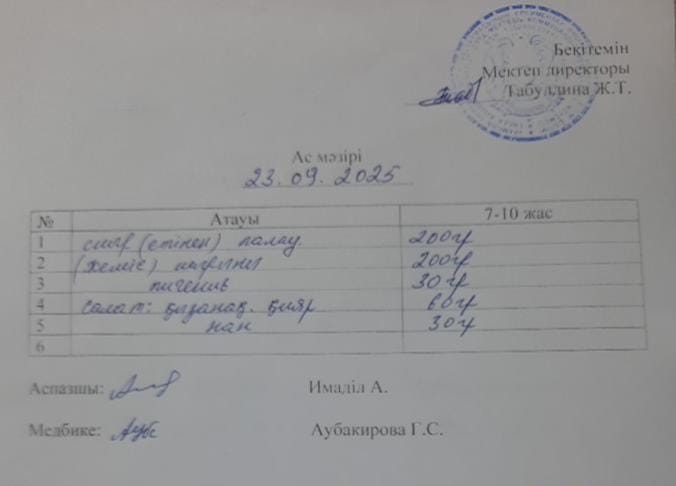 Бекітемін
Мектеп директоры
Габуллина Ж.Т.
Ас мәзірі
23.09.2025
№ Атауы 7-10 жас
1 сиыр (етінен) палау 200гр
2 (жеміс) шырыны 200гр
3 печенье 30гр
4 Салат: қызанақ, қияр 60гр
5 нан 30гр
6
Аспазшы: Имаділ А.
Медбике: Аубакирова Г.С.